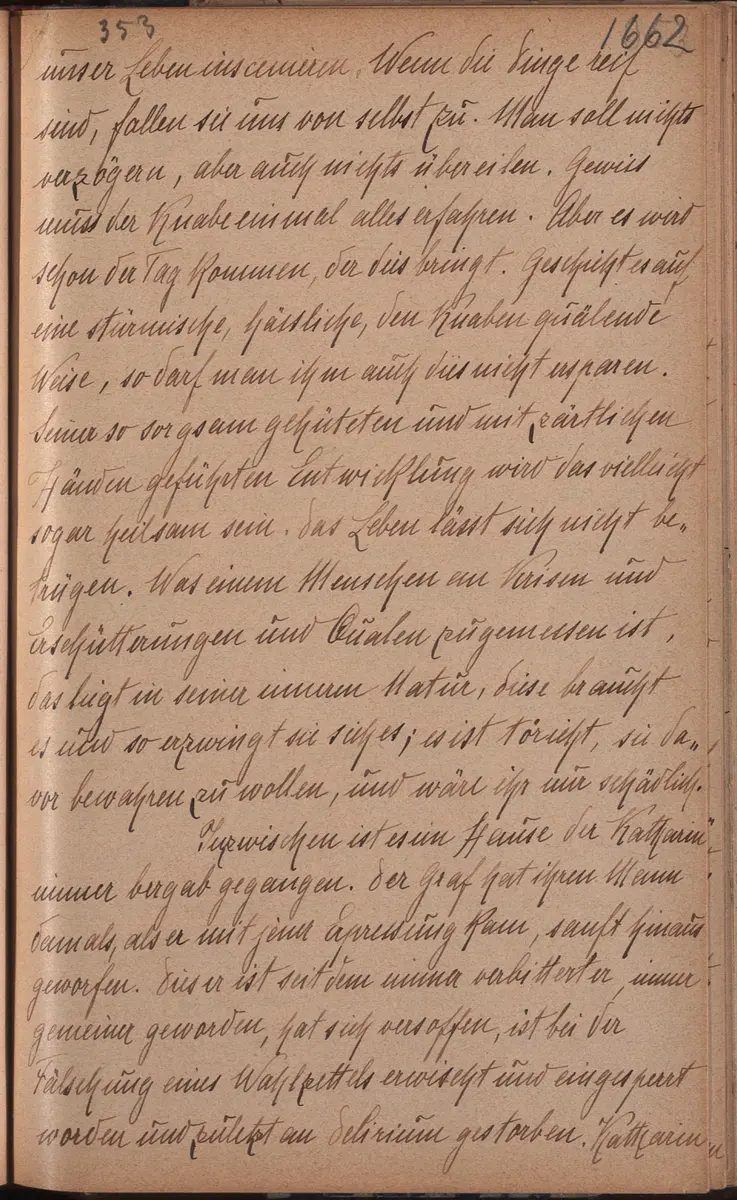 353
1662
unser Leben inscenieren. Wenn die Dinge reif
sind, fallen sie uns von selbst zu. Man soll nichts
verzögern, aber auch nichts übereilen. Gewiss
muss der Knabe einmal alles erfahren. Aber es wird
schon der Tag kommen, der dies bringt. Geschieht es auf
eine stürmische, hässliche, den Knaben quälende
Weise, so darf man ihm auch dies nicht ersparen.
Seiner so sorgsam gehüteten und mit zärtlichen
Händen geführten Entwicklung wird das vielleicht
sogar heilsam sein. Das Leben lässt sich nicht be„
trügen. Was einem Menschen an Krisen und
Erschütterungen und Qualen zugemessen ist,
das liegt in seiner inneren Natur, diese braucht
es und so erzwingt sie sich es; es ist töricht, sie da„
vor bewahren zu wollen, und wäre ihr nur schädlich.
Inzwischen ist es im Hause der Katharin
immer bergab gegangen. Der Graf hat ihren Mann
damals, als er mit jener Erpressung kam, sanft hinaus
geworfen. Dieser ist seitdem immer verbitterter, immer
gemeiner geworden, hat sich versoffen, ist bei der
Fälschung eines Wahlzettels erwischt und eingesperrt
worden und zuletzt an Delirium gestorben. Katharin